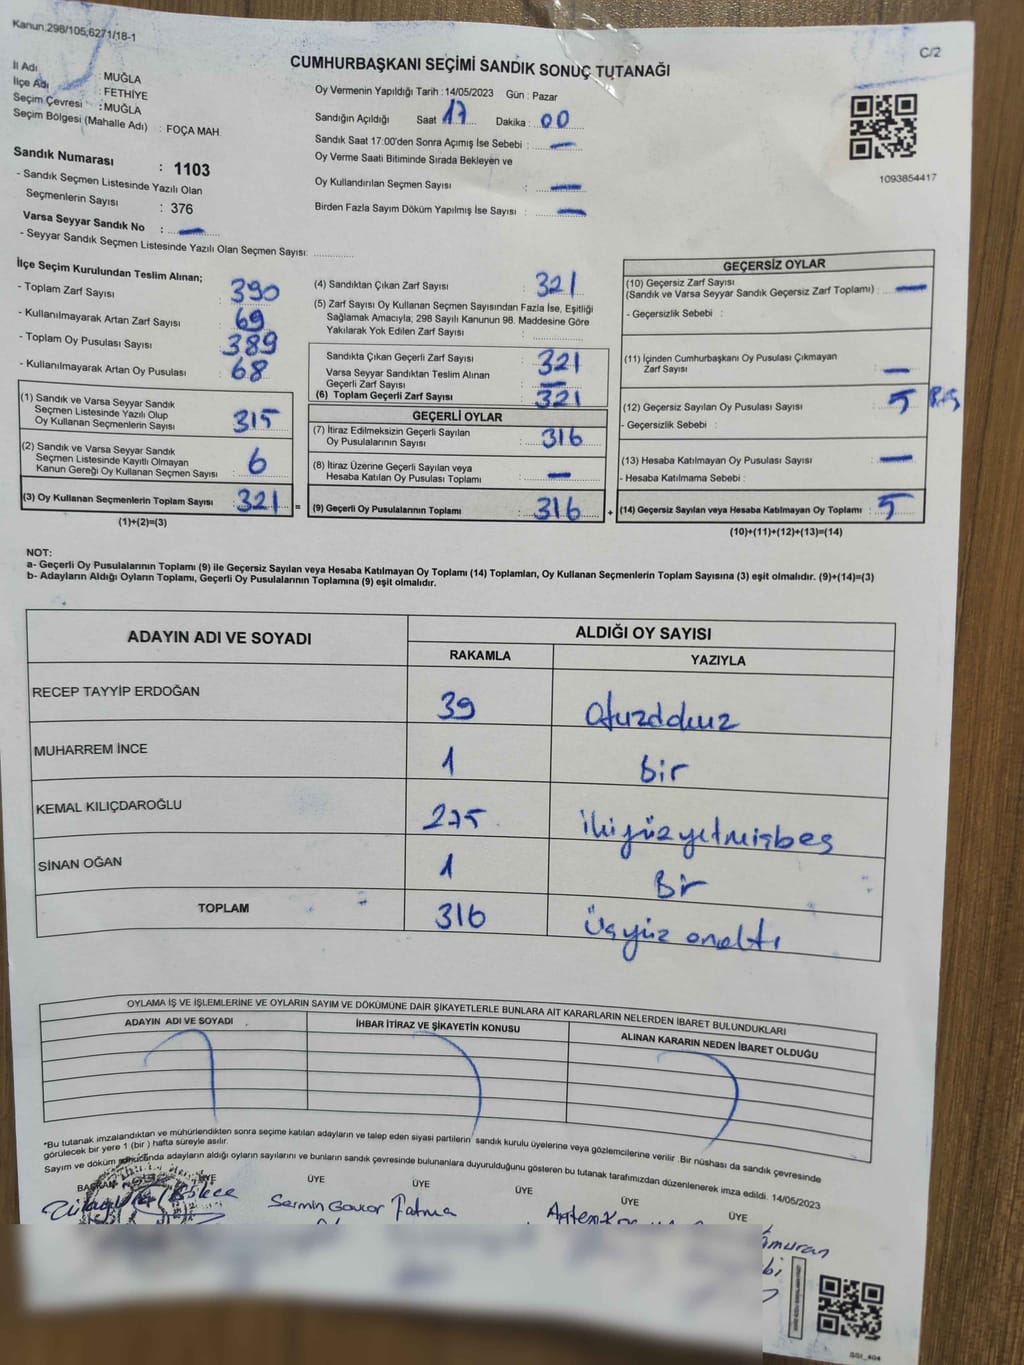 Kanun:298/105;6271/18-1
C/2
CUMHURBAŞKANI SEÇİMİ SANDIK SONUÇ TUTANAĞI
İl Adı : MUĞLA
İlçe Adı : FETHİYE
Seçim Çevresi : MUĞLA
Seçim Bölgesi (Mahalle Adı) : FOÇA MAH.
Sandık Numarası : 1103
- Sandık Seçmen Listesinde Yazılı Olan
Seçmenlerin Sayısı : 376
Varsa Seyyar Sandık No : —
- Seyyar Sandık Seçmen Listesinde Yazılı Olan Seçmen Sayısı: ..............
Oy Vermenin Yapıldığı Tarih : 14/05/2023 Gün : Pazar
Sandığın Açıldığı Saat 17 Dakika : 00
Sandık Saat 17:00'den Sonra Açımış İse Sebebi : —
Oy Verme Saati Bitiminde Sırada Bekleyen ve
Oy Kullandırılan Seçmen Sayısı : —
Birden Fazla Sayım Döküm Yapılmış İse Sayısı : —
1093854417
İlçe Seçim Kurulundan Teslim Alınan;
- Toplam Zarf Sayısı : 390
- Kullanılmayarak Artan Zarf Sayısı : 69
- Toplam Oy Pusulası Sayısı : 389
- Kullanılmayarak Artan Oy Pusulası : 68
(1) Sandık ve Varsa Seyyar Sandık
Seçmen Listesinde Yazılı Olup
Oy Kullanan Seçmenlerin Sayısı : 315
(2) Sandık ve Varsa Seyyar Sandık
Seçmen Listesinde Kayıtlı Olmayan
Kanun Gereği Oy Kullanan Seçmen Sayısı : 6
(3) Oy Kullanan Seçmenlerin Toplam Sayısı : 321 =
(1)+(2)=(3)
(4) Sandıktan Çıkan Zarf Sayısı : 321
(5) Zarf Sayısı Oy Kullanan Seçmen Sayısından Fazla İse, Eşitliği
Sağlamak Amacıyla; 298 Sayılı Kanunun 98. Maddesine Göre
Yakılarak Yok Edilen Zarf Sayısı :
Sandıkta Çıkan Geçerli Zarf Sayısı : 321
Varsa Seyyar Sandıktan Teslim Alınan
Geçerli Zarf Sayısı : —
(6) Toplam Geçerli Zarf Sayısı : 321
GEÇERLİ OYLAR
(7) İtiraz Edilmeksizin Geçerli Sayılan
Oy Pusulalarının Sayısı : 316
(8) İtiraz Üzerine Geçerli Sayılan veya
Hesaba Katılan Oy Pusulası Toplamı : —
(9) Geçerli Oy Pusulalarının Toplamı : 316 +
GEÇERSİZ OYLAR
(10) Geçersiz Zarf Sayısı
(Sandık ve Varsa Seyyar Sandık Geçersiz Zarf Toplamı) : —
- Geçersizlik Sebebi :
(11) İçinden Cumhurbaşkanı Oy Pusulası Çıkmayan
Zarf Sayısı : —
(12) Geçersiz Sayılan Oy Pusulası Sayısı : 5 Beş
- Geçersizlik Sebebi :
(13) Hesaba Katılmayan Oy Pusulası Sayısı : —
- Hesaba Katılmama Sebebi :
(14) Geçersiz Sayılan veya Hesaba Katılmayan Oy Toplamı : 5
(10)+(11)+(12)+(13)=(14)
NOT:
a- Geçerli Oy Pusulalarının Toplamı (9) ile Geçersiz Sayılan veya Hesaba Katılmayan Oy Toplamı (14) Toplamları, Oy Kullanan Seçmenlerin Toplam Sayısına (3) eşit olmalıdır. (9)+(14)=(3)
b- Adayların Aldığı Oyların Toplamı, Geçerli Oy Pusulalarının Toplamına (9) eşit olmalıdır.
ADAYIN ADI VE SOYADI ALDIĞI OY SAYISI
RAKAMLA YAZIYLA
RECEP TAYYİP ERDOĞAN 39 otuzdokuz
MUHARREM İNCE 1 bir
KEMAL KILIÇDAROĞLU 275 ikiyüzyetmişbeş
SİNAN OĞAN 1 Bir
TOPLAM 316 Üçyüz onaltı
OYLAMA İŞ VE İŞLEMLERİNE VE OYLARIN SAYIM VE DÖKÜMÜNE DAİR ŞİKAYETLERLE BUNLARA AİT KARARLARIN NELERDEN İBARET BULUNDUKLARI
ADAYIN ADI VE SOYADI İHBAR İTİRAZ VE ŞİKAYETİN KONUSU ALINAN KARARIN NEDEN İBARET OLDUĞU
*Bu tutanak imzalandıktan ve mühürlendikten sonra seçime katılan adayların ve talep eden siyasi partilerin sandık kurulu üyelerine veya gözlemcilerine verilir .Bir nüshası da sandık çevresinde
görülecek bir yere 1 (bir ) hafta süreyle asılır.
Sayım ve döküm sonucunda adayların aldığı oyların sayılarını ve bunların sandık çevresinde bulunanlara duyurulduğunu gösteren bu tutanak tarafımızdan düzenlenerek imza edildi. 14/05/2023
BAŞKAN ÜYE ÜYE ÜYE ÜYE ÜYE ÜYE
Gökce Sermin Fatma